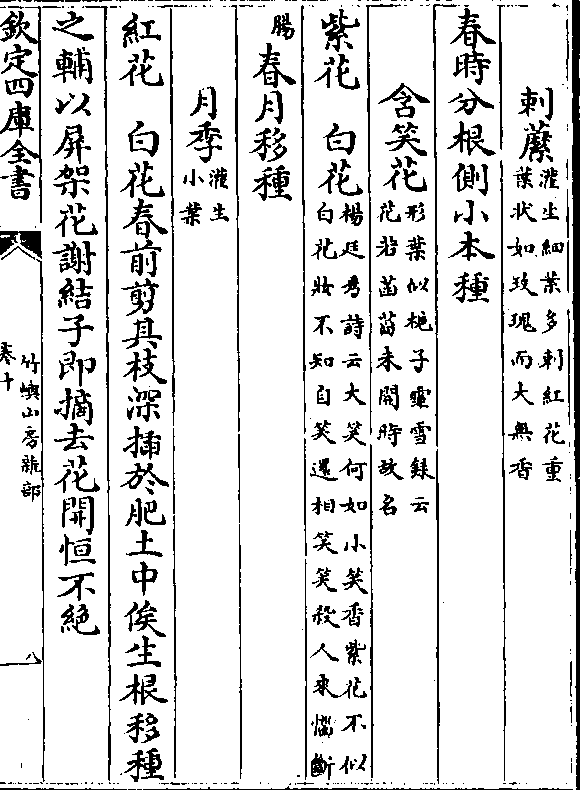 刺蘼灌生細葉多刺紅花重
葉狀如玫瑰而大無香
春時分根側小本種
含笑花形葉似梔子
花若菡萏未開時故名
紫花 白花楊廷秀詩云大笑何如小笑香紫花不似
白花妝不知自笑還相笑笑殺人來惱斷
腸
春月移種
月季灌生
小葉
紅花 白花春前剪其枝深插於肥土中俟生根移種
之輔以屏架花謝結子即摘去花開恒不絕
欽定四庫全書
竹嶼山房雜部
卷十
八